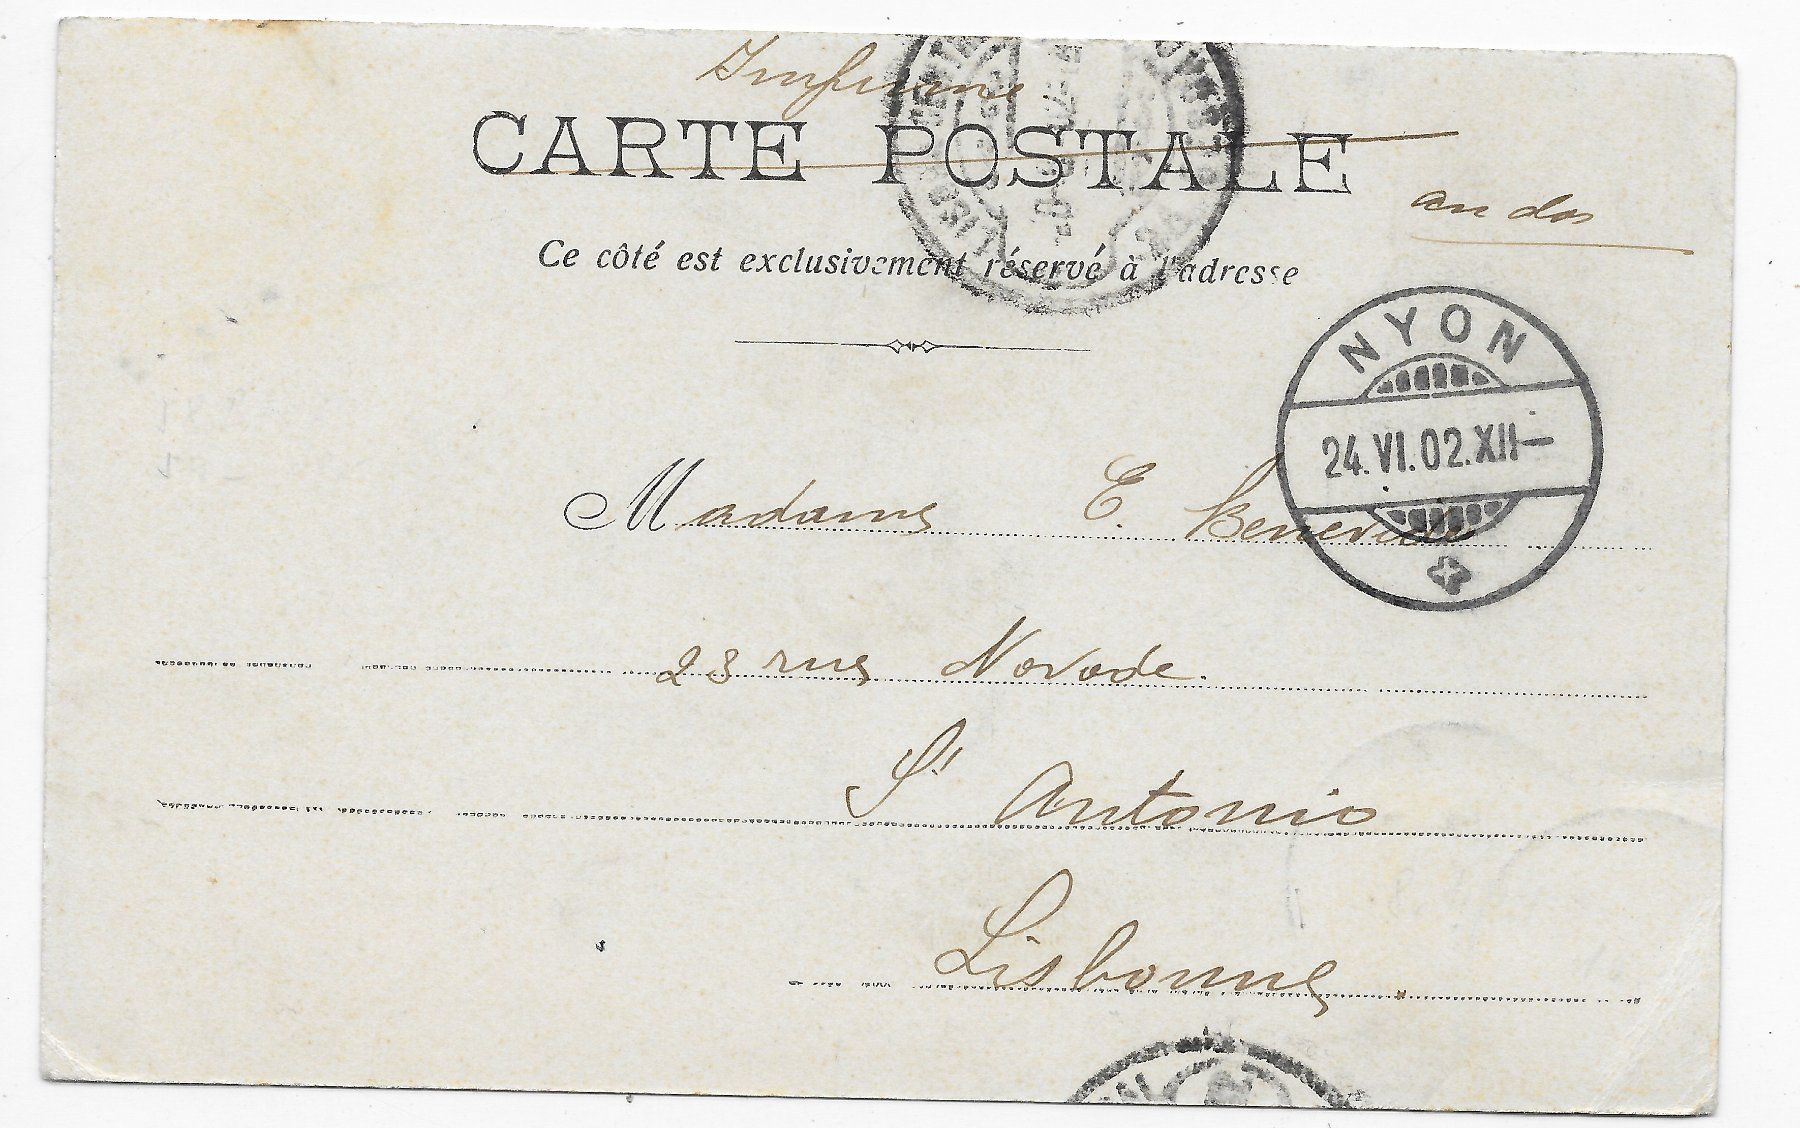 Imprimé
CARTE POSTALE
au dos
Ce côté est exclusivement réservé à l'adresse
NYON
24.VI.02.XII—
Madame E. Benevide
23 rue Novade.
St Antonio
Lisbonne.